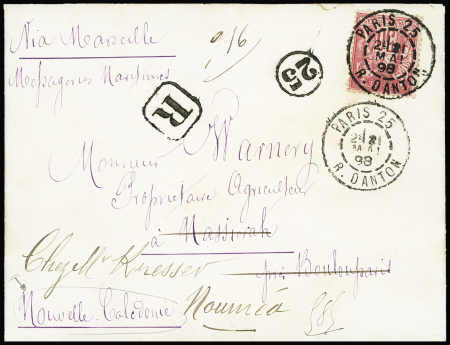 Via Marseille
Messageries Maritimes
916
25
R
PARIS 25
2E 21
MAI
98
R. DANTON
PARIS 25
2E 21
MAI
98
R. DANTON
Monsieur Warnery
Propriétaire Agriculteur
à Nassirah
près Bouloupari
Chez Mr Kresser
Nouvelle Calédonie Nouméa